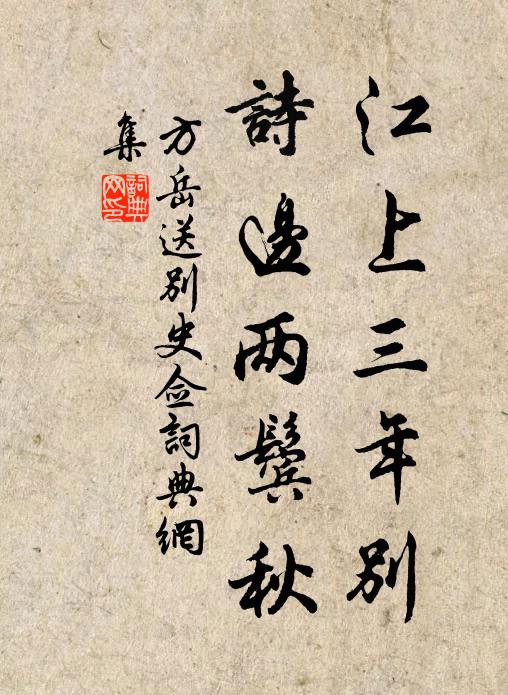 江上三年别
詩邊两鬓秋
方岳送别史佥詞典網
集
詞典网印